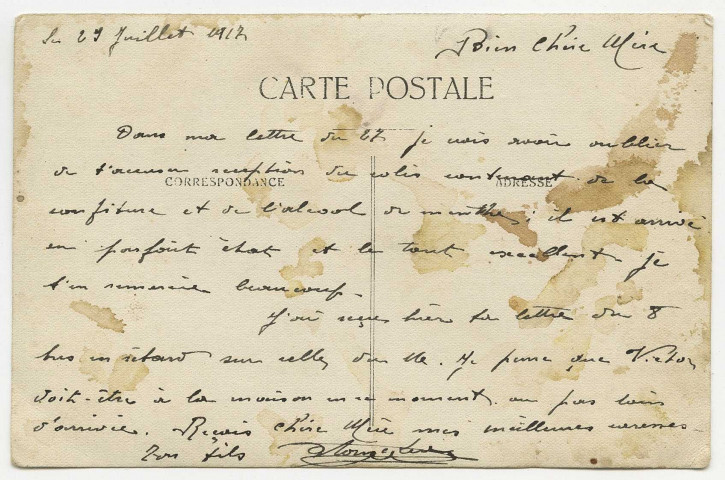 Le 29 Juillet 1917
Bien Chère Mère
CARTE POSTALE
Dans ma lettre du 27 je crois avoir oublier
de t'accuser reception du colis contenant de la
CORRESPONDANCE
ADRESSE
confiture et de l'alcool de menthe; il est arrivé
en parfait état et le tout excellent. Je
t'en remercie beaucoup.
J'ai reçu hier ta lettre du 8
en retard sur celle du 11. Je pense que Victor
doit-être à la maison en ce moment. ou pas loin
d'arrivée. Reçois Chère Mère mes meilleures caresses.
Ton fils